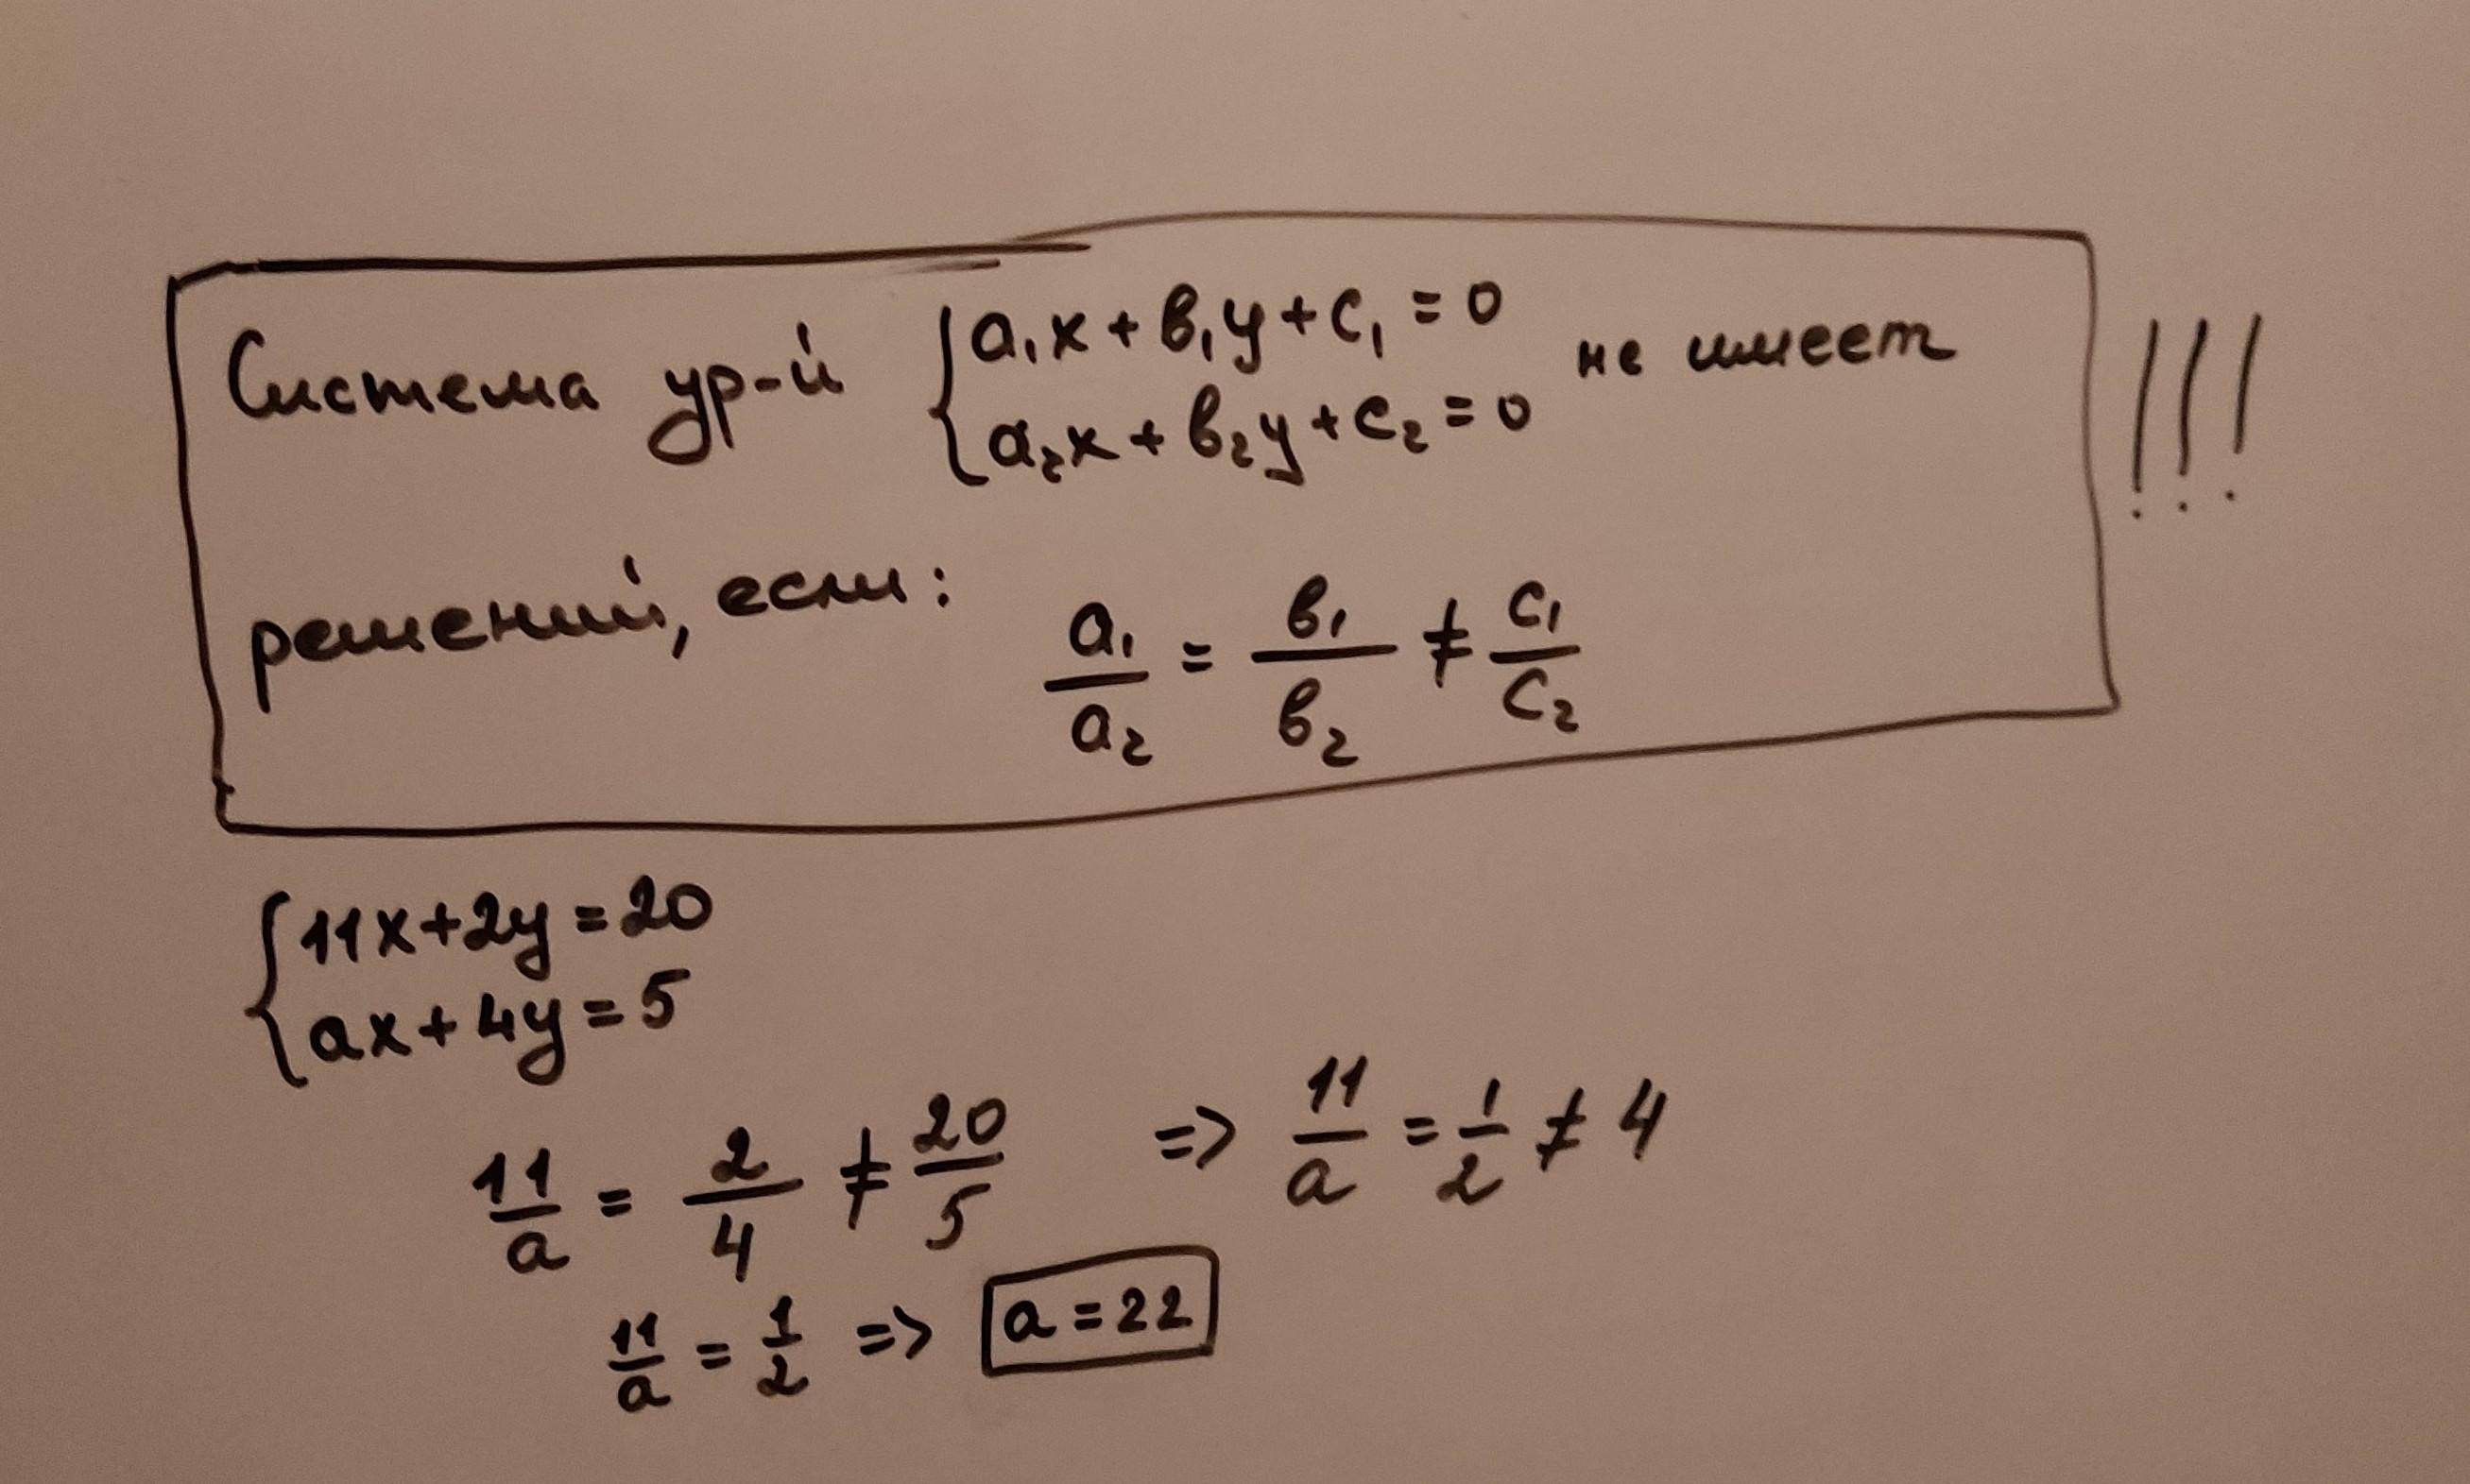 Система ур-й { a₁x + в₁y + c₁ = 0 не имеет
a₂x + в₂y + c₂ = 0
!!!
решений, если: a₁/a₂ = в₁/в₂ ≠ c₁/c₂
{ 11x + 2y = 20
ax + 4y = 5
11/a = 2/4 ≠ 20/5 => 11/a = 1/2 ≠ 4
11/a = 1/2 => a = 22